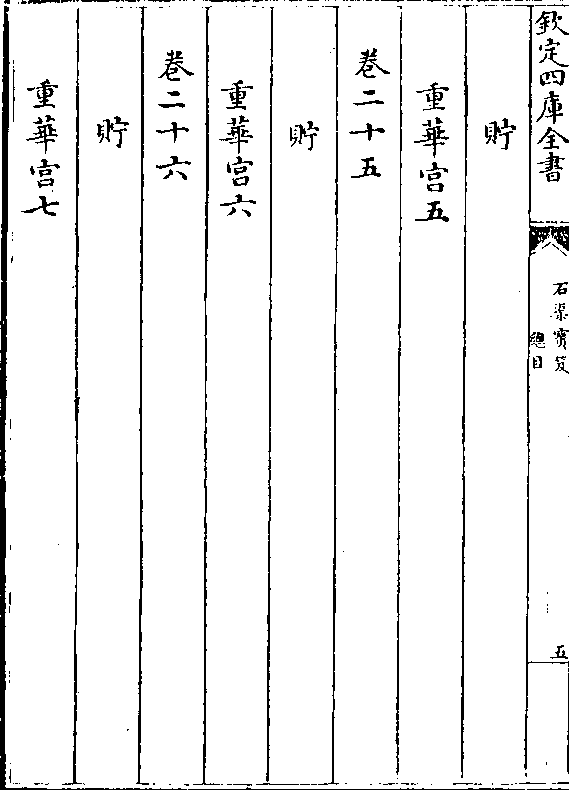 欽定四庫全書
石渠寳笈
總目
五
貯
重華宫五
卷二十五
貯
重華宫六
卷二十六
貯
重華宫七